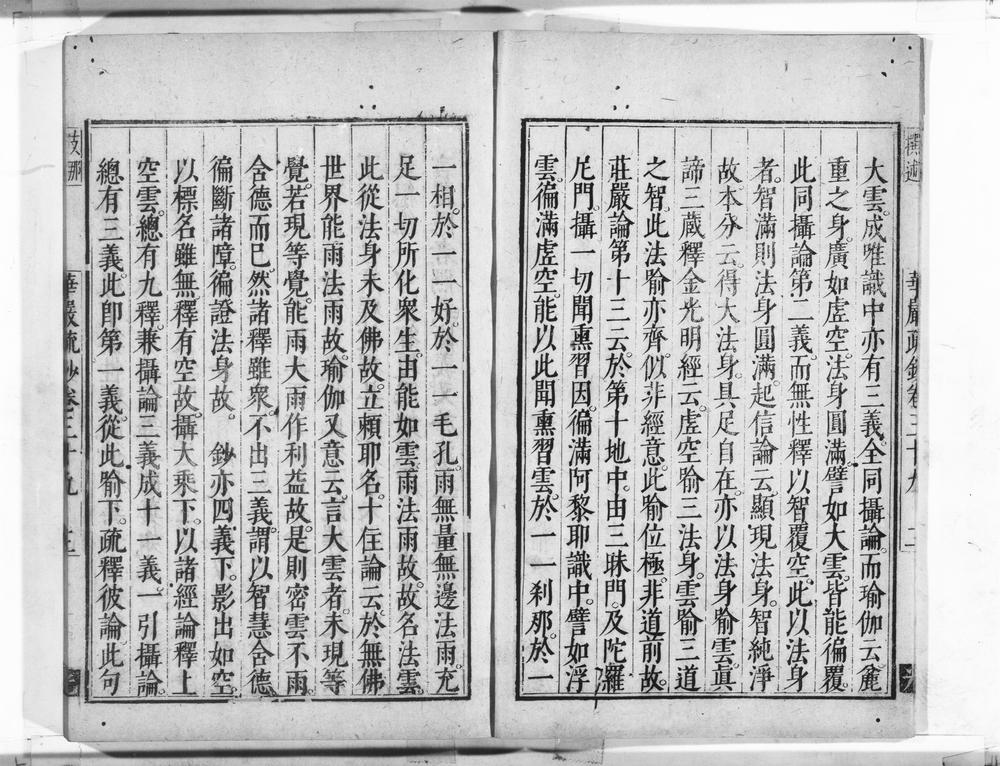 撰述
華嚴疏鈔卷三十九 二
大雲。成唯識中亦有三義。全同攝論。而瑜伽云麄
重之身。廣如虛空。法身圓滿。譬如大雲。皆能徧覆。
此同攝論第二義。而無性釋以智覆空。此以法身
者。智滿則法身圓滿。起信論云。顯現法身。智純淨
故。本分云得大法身。具足自在。亦以法身喻雲。真
諦三藏釋金光明經云。虛空喻三法身。雲喻三道
之智。此法喻亦齊。似非經意。此喻位極。非道前故。
莊嚴論第十三云。於第十地中由三昧門。及陀羅
尼門。攝一切聞熏習因。徧滿阿黎耶識中。譬如浮
雲。徧滿虛空。能以此聞熏習雲。於一一刹那。於一
一相。於一一好。於一一毛孔。雨無量無邊法雨。充
足一切所化眾生。由能如雲雨法雨故。故名法雲。
此從法身未及佛故。立賴耶名。十住論云。於無佛
世界能雨法雨故。瑜伽又意云。言大雲者。未現等
覺。若現等覺。能雨大雨作利益故。是則密雲不雨。
含德而已。然諸釋雖眾。不出三義。謂以智慧含德。
徧斷諸障。徧證法身故。 鈔亦四義下。影出如空。
以標名雖無。釋有空故。攝大乘下。以諸經論釋上
空雲。總有九釋。兼攝論三義成十一義。一引攝論。
總有三義。此即第一義。從此喻下。疏釋彼論此句
支那
華嚴疏鈔卷三十九 三